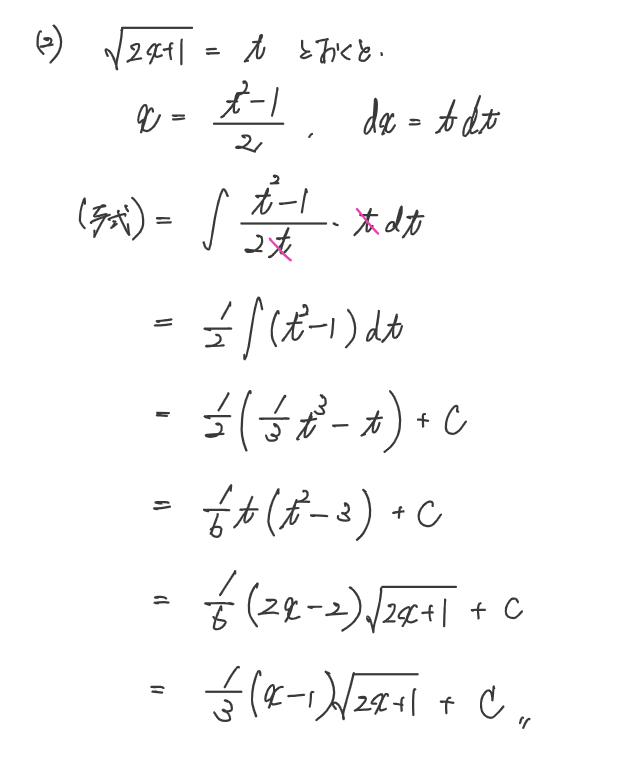 (2) √(2x+1) = t とおくと.
x = (t²-1)/2 , dx = t dt
(与式) = ∫ (t²-1)/(2t) · t dt
= 1/2 ∫ (t²-1) dt
= 1/2 ( 1/3 t³ - t ) + C
= 1/6 t (t²-3) + C
= 1/6 (2x-2)√(2x+1) + C
= 1/3 (x-1)√(2x+1) + C 〃